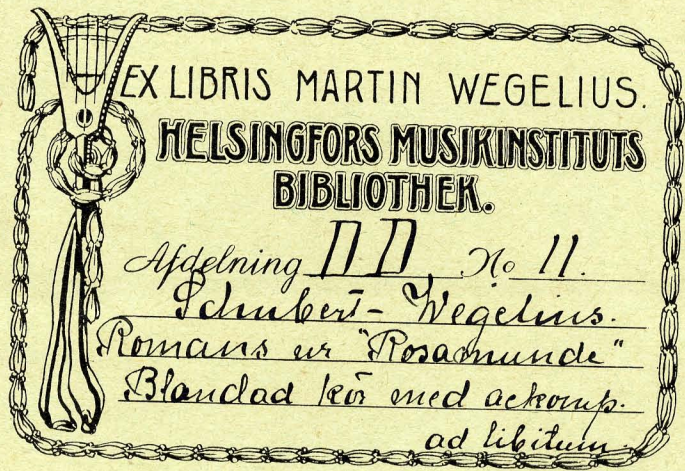 EX LIBRIS MARTIN WEGELIUS.
HELSINGFORS MUSIKINSTITUTS
BIBLIOTHEK.
Afdelning DD No 11.
Schubert-Wegelius.
Romans ur "Rosamunde"
Blandad kör med ackomp.
ad libitum.